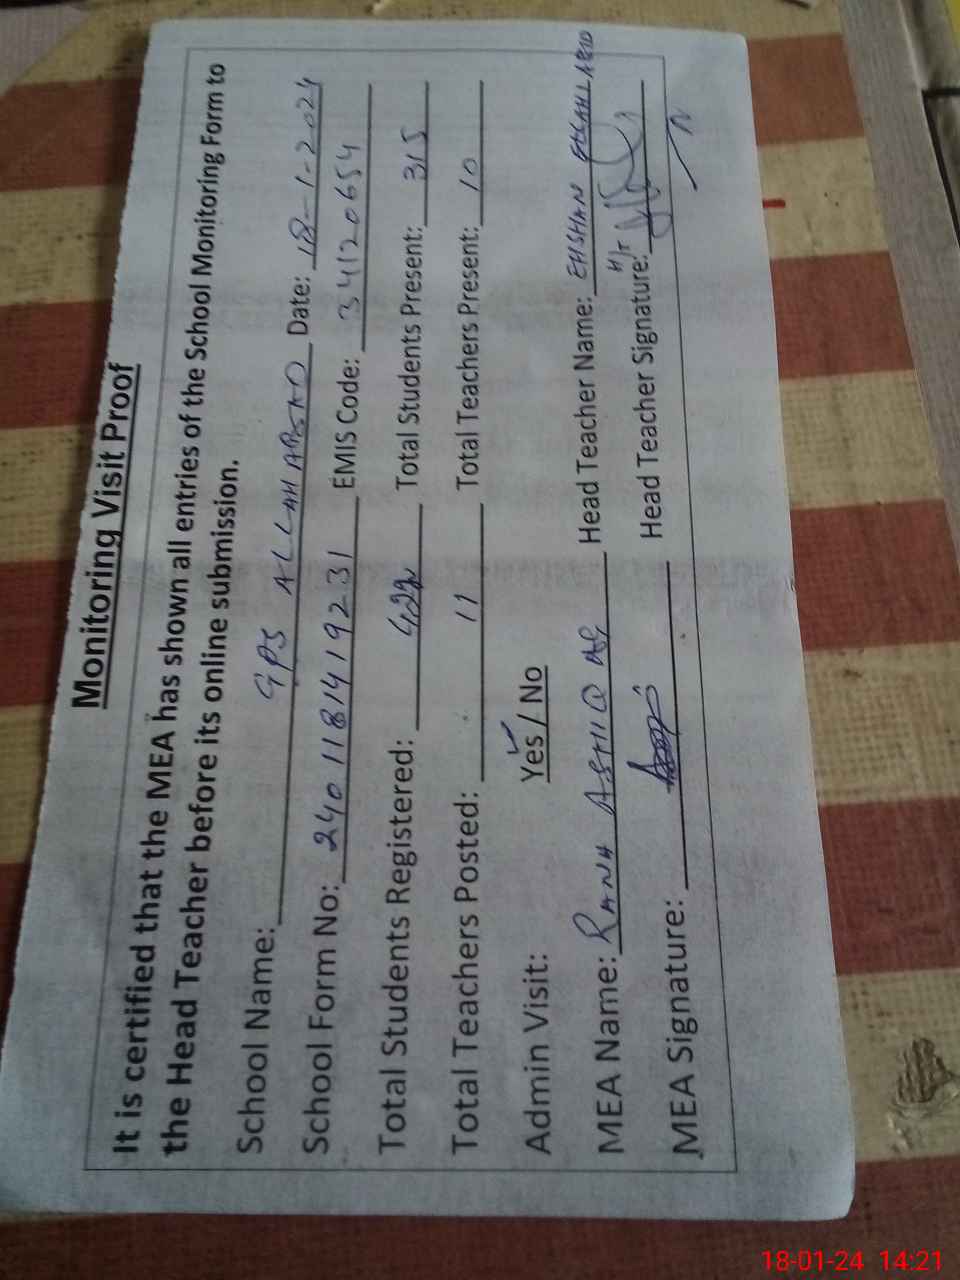 Monitoring Visit Proof
It is certified that the MEA has shown all entries of the School Monitoring Form to
the Head Teacher before its online submission.
School Name: GPS ALLAH ABSAD Date: 18-1-2024
School Form No: 2401181419231 EMIS Code: 34120654
Total Students Registered: 422 Total Students Present: 315
Total Teachers Posted: 11 Total Teachers Present: 10
Admin Visit: Yes / No
MEA Name: RANA ASHIQ Head Teacher Name: EHSHAN
H/T
MEA Signature: Head Teacher Signature:
18-01-24 14:21